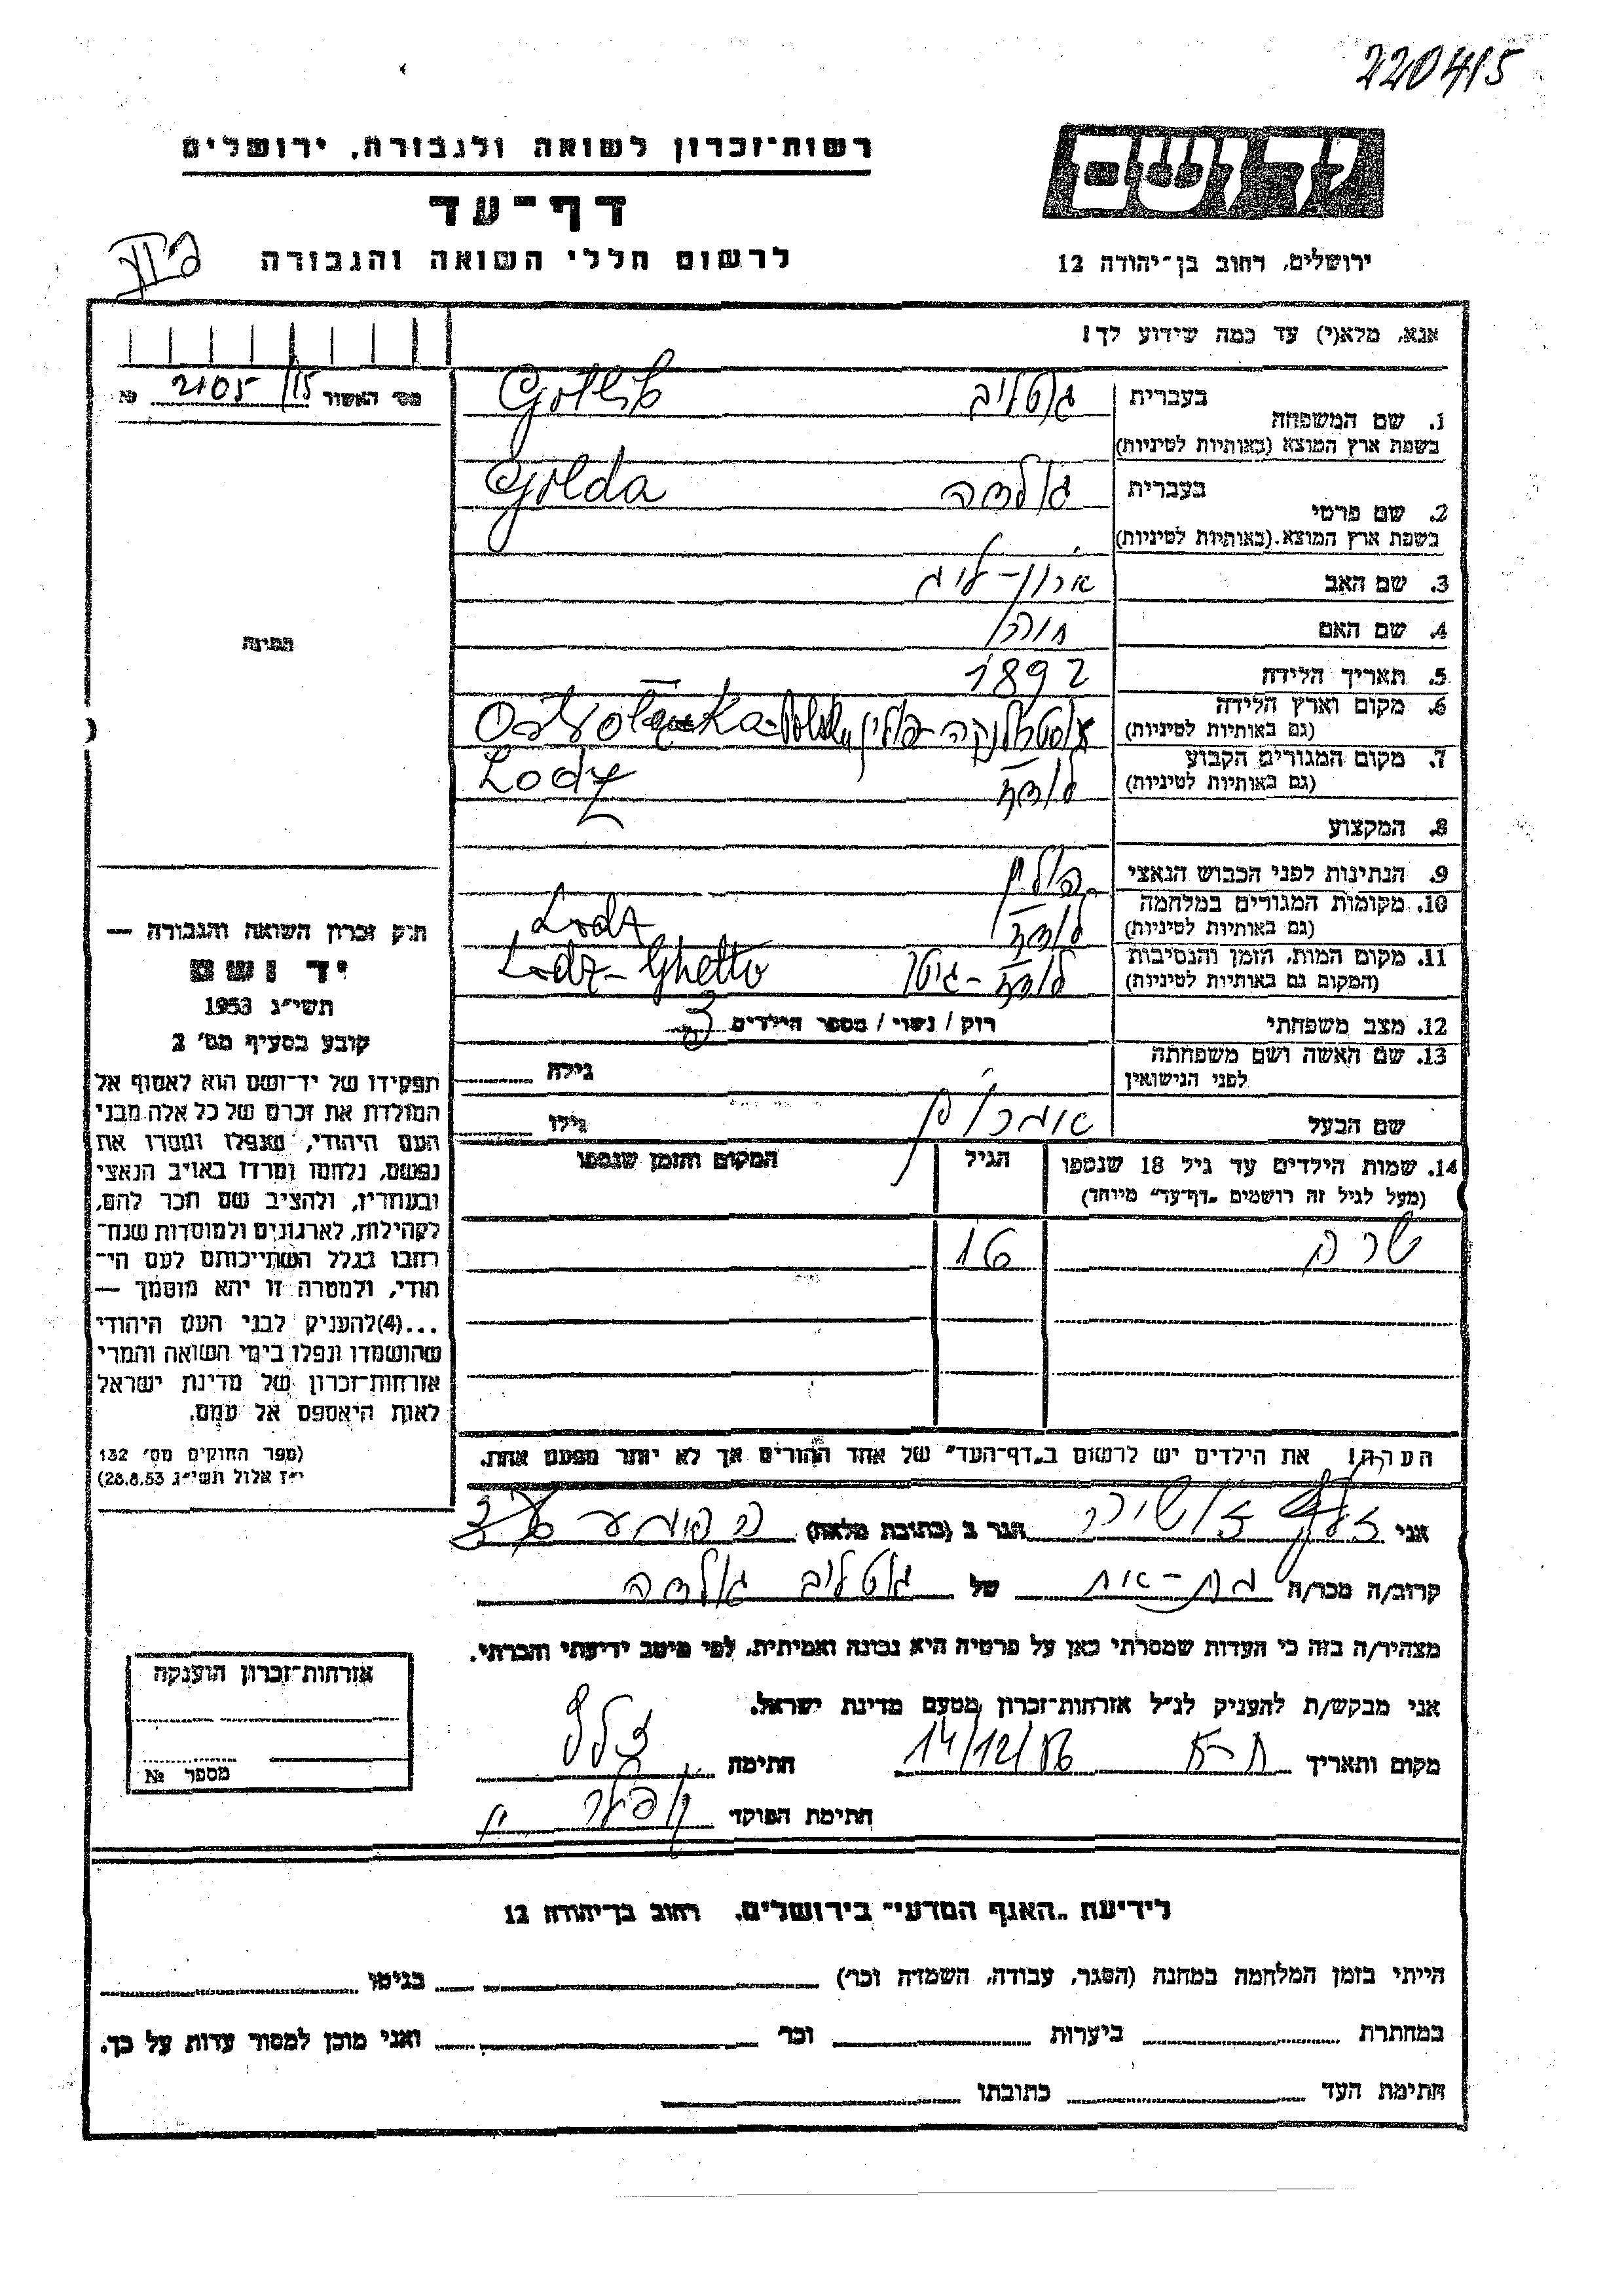 220415
רשות־זכרון לשואה ולגבורה, ירושלים
יד ושם
דף־עד
לרשום חללי השואה והגבורה
ירושלים, רחוב בן־יהודה 12
אנא, מלא(י) עד כמה שידוע לך!
מס' האשור 2105/15 №
1. שם המשפחה בעברית גוטליב
בשפת ארץ המוצא (באותיות לטיניות) Gottlib
2. שם פרטי בעברית גולדה
בשפת ארץ המוצא (באותיות לטיניות) Golda
3. שם האב ארון-לייב
4. שם האם
5. תאריך הלידה 1892
6. מקום וארץ הלידה אוסטרולנקה-פולין Ostrolęnka-Polska
(גם באותיות לטיניות)
7. מקום המגורים הקבוע לודז Lodz
(גם באותיות לטיניות)
8. המקצוע
9. הנתינות לפני הכבוש הנאצי פולין
10. מקומות המגורים במלחמה לודז Lodz
(גם באותיות לטיניות)
11. מקום המות, הזמן והנסיבות לודז-גיטו Lodz-Ghetto
(המקום גם באותיות לטיניות)
12. מצב משפחתי רוק / נשוי / מספר הילדים 3
13. שם האשה ושם משפחתה
לפני הנישואין גילה
שם הבעל גילו
14. שמות הילדים עד גיל 18 שנספו הגיל המקום והזמן שנספו
(מעל לגיל זה רושמים „דף־עד" מיוחד)
שרה 16
הערה! את הילדים יש לרשום ב„דף־העד" של אחד ההורים אך לא יותר מפעם אחת.
התמונה
חוק זכרון השואה והגבורה —
יד ושם
תשי״ג 1953
קובע בסעיף מס' 2
תפקידו של יד־ושם הוא לאסוף אל
המולדת את זכרם של כל אלה מבני
העם היהודי, שנפלו ומסרו את
נפשם, נלחמו ומרדו באויב הנאצי
ובעוזריו, ולהציב שם וזכר להם,
לקהילות, לארגונים ולמוסדות שנח־
רבו בגלל השתייכותם לעם הי־
הודי, ולמטרה זו יהא מוסמך —
...(4) להעניק לבני העם היהודי
שהושמדו ונפלו בימי השואה והמרי
אזרחות־זכרון של מדינת ישראל
לאות היאספם אל עמם.
(ספר החוקים מס' 132
י״ז אלול תשי״ג 28.8.53)
אני הגר ב (כתובת מלאה)
קרוב/ה מכר/ה בת-אח של גוטליב גולדה
מצהיר/ה בזה כי העדות שמסרתי כאן על פרטיה היא נכונה ואמיתית, לפי מיטב ידיעתי והכרתי.
אני מבקש/ת להעניק לנ״ל אזרחות־זכרון מטעם מדינת ישראל.
מקום ותאריך ת-א 14/12/86 חתימה
חתימת הפוקד
אזרחות־זכרון הוענקה
מספר №
לידיעת „האגף המדעי" בירושלים, רחוב בן־יהודה 12
הייתי בזמן המלחמה במחנה (הסגר, עבודה, השמדה וכו') בגיטו
במחתרת ביערות וכו' ואני מוכן למסור עדות על כך.
חתימת העד כתובתו